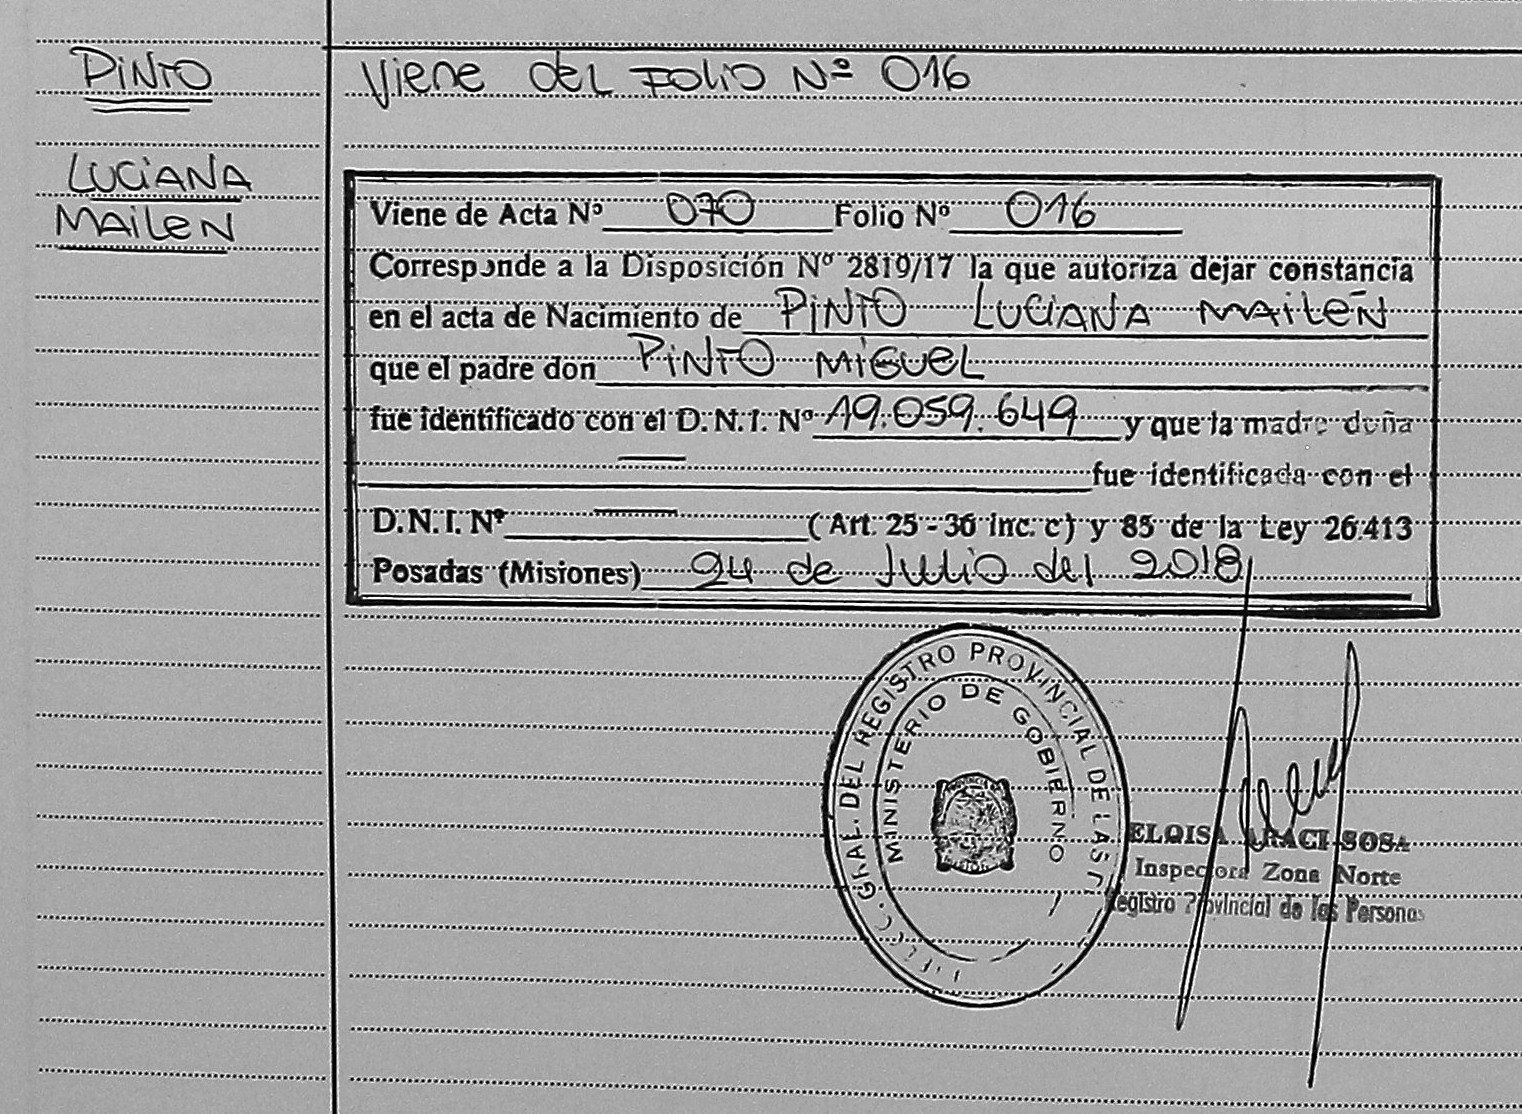 PINTO
LUCIANA
MAILEN
Viene del FOLIO Nº 016
Viene de Acta Nº 070 Folio Nº 016
Corresponde a la Disposición Nº 2819/17 la que autoriza dejar constancia
en el acta de Nacimiento de PINTO LUCIANA MAILEÑ
que el padre don PINTO MIGUEL
fue identificado con el D.N.I. Nº 19.059.649 y que la madre doña
— fue identificada con el
D.N.I. Nº — (Art. 25 - 36 inc. c) y 85 de la Ley 26.413
Posadas (Misiones) 24 de Julio del 2018
GRAL. DEL REGISTRO PROVINCIAL DE LAS
MINISTERIO DE GOBIERNO
ELOISA SOSA
Inspectora Zona Norte
Registro Provincial de las Personas